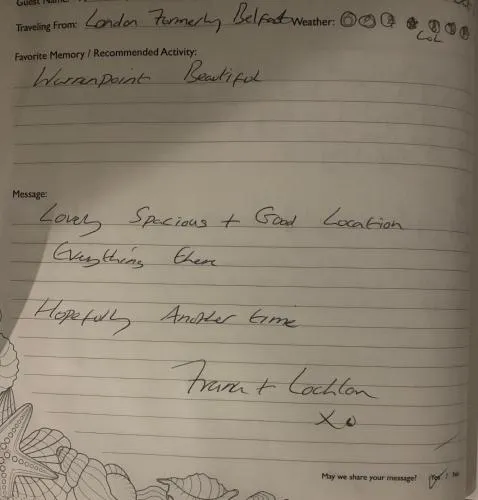 Guest Name:
Traveling From: London Formerly Belfast Weather:
Col
Favorite Memory / Recommended Activity:
Warrenpoint Beautiful
Message:
Lovely Spacious + Good Location
Everything there
Hopefully Another time
+ Lochlan
Xo
May we share your message? Yes / No